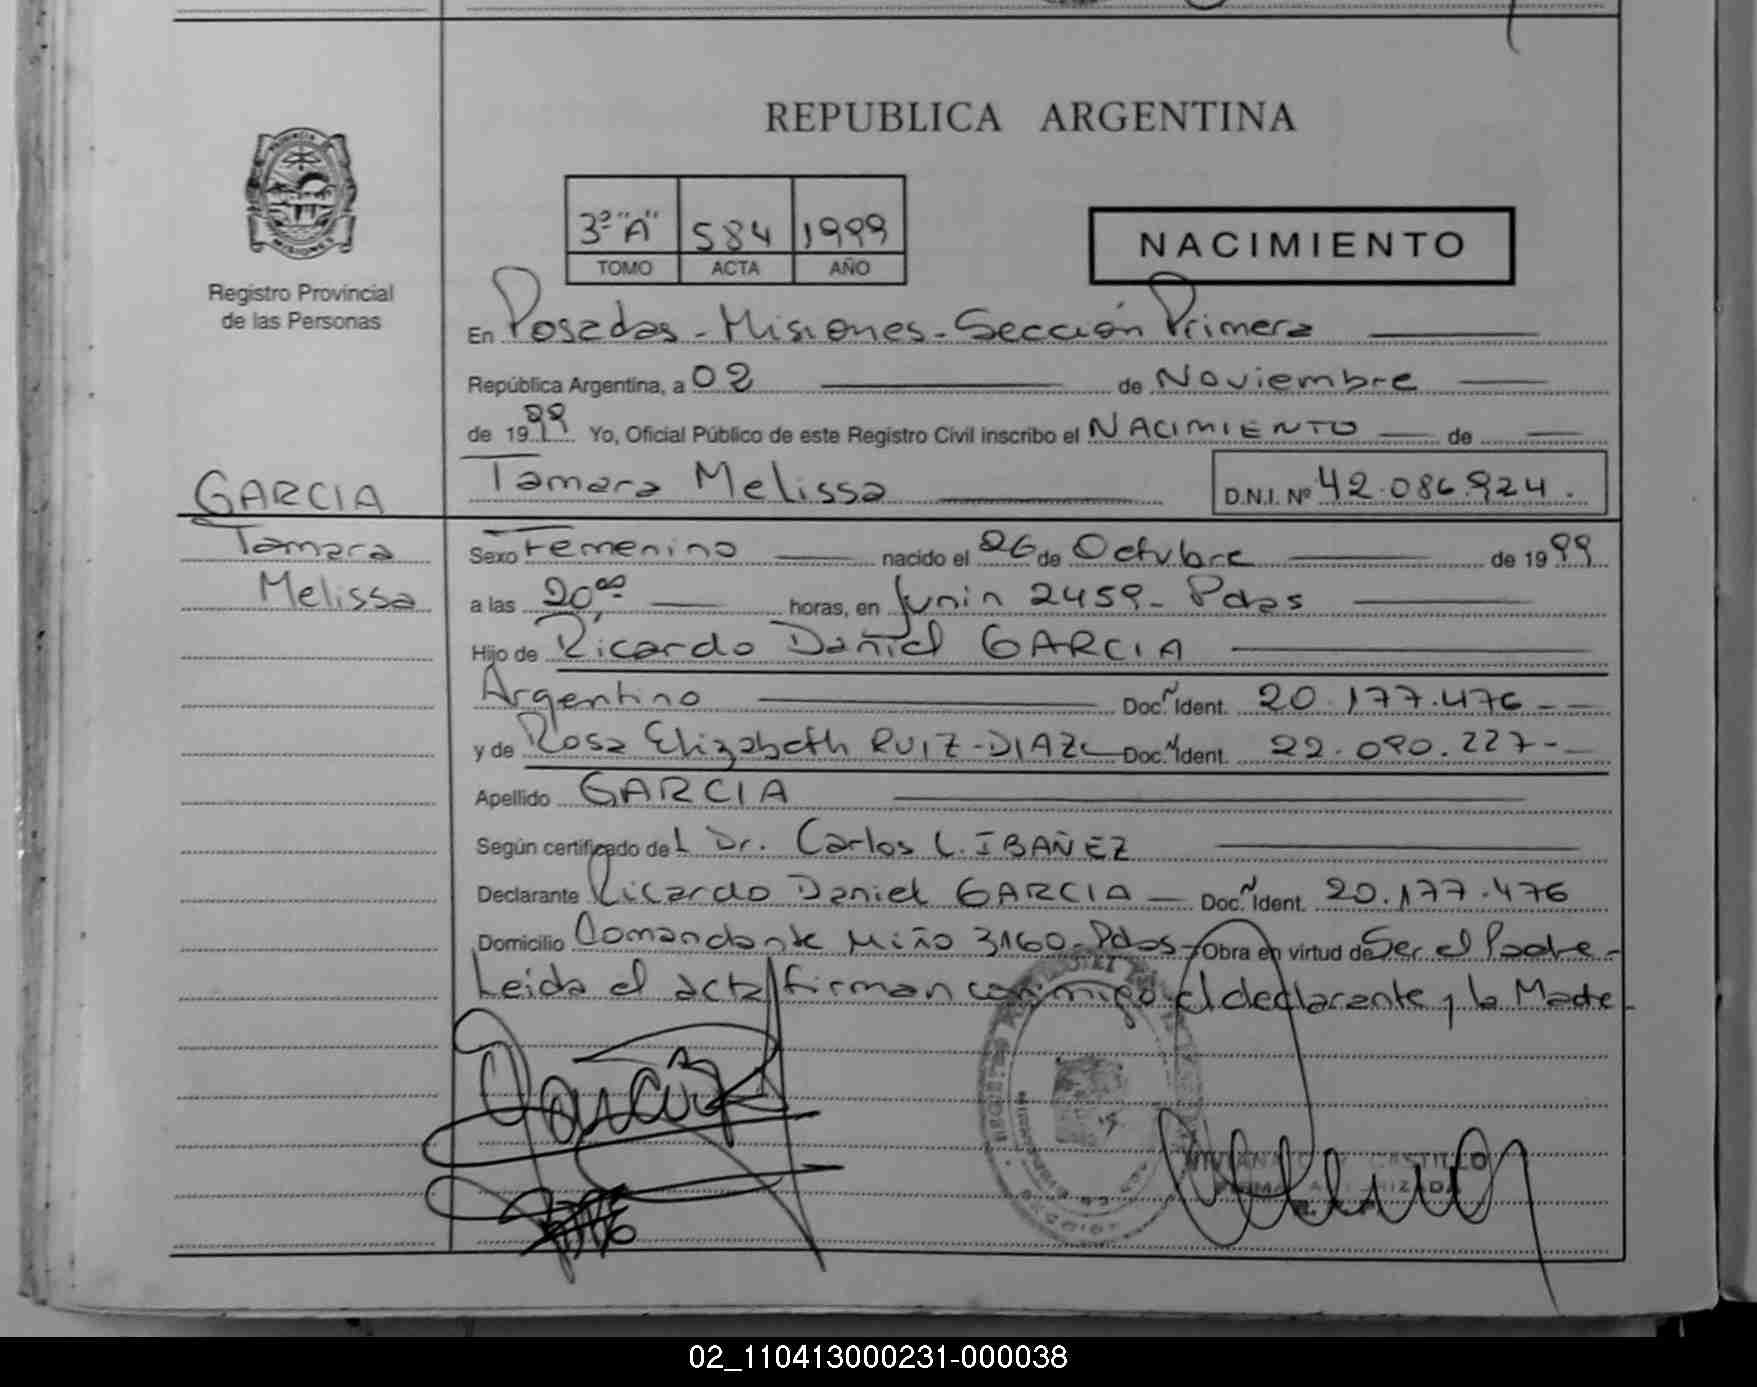 REPUBLICA ARGENTINA
PROVINCIA
MISIONES
Registro Provincial
de las Personas
3º "A" 584 1999
TOMO ACTA AÑO
NACIMIENTO
En Posadas - Misiones - Sección Primera
República Argentina, a 02 de Noviembre
de 1999 Yo, Oficial Público de este Registro Civil inscribo el NACIMIENTO de
GARCIA
Tamara Melissa
D.N.I. Nº 42.086.924.
Tamara
Melissa
Sexo Femenino nacido el 26 de Octubre de 1999
a las 20,00 horas, en Junin 2459 - Pdas
Hijo de Ricardo Daniel GARCIA
Argentino Doc. N Ident. 20.177.476 - -
y de Rosa Elizabeth RUIZ-DIAZ - Doc. N Ident. 22.090.227 - -
Apellido GARCIA
Según certificado del Dr. Carlos L. IBAÑEZ
Declarante Ricardo Daniel GARCIA - Doc. N Ident. 20.177.476
Domicilio Comandante Miño 3160 - Pdas - Obra en virtud de Ser el Padre -
Leida el acta firman conmigo el declarante y la Madre -
CASTILLO
02_110413000231-000038